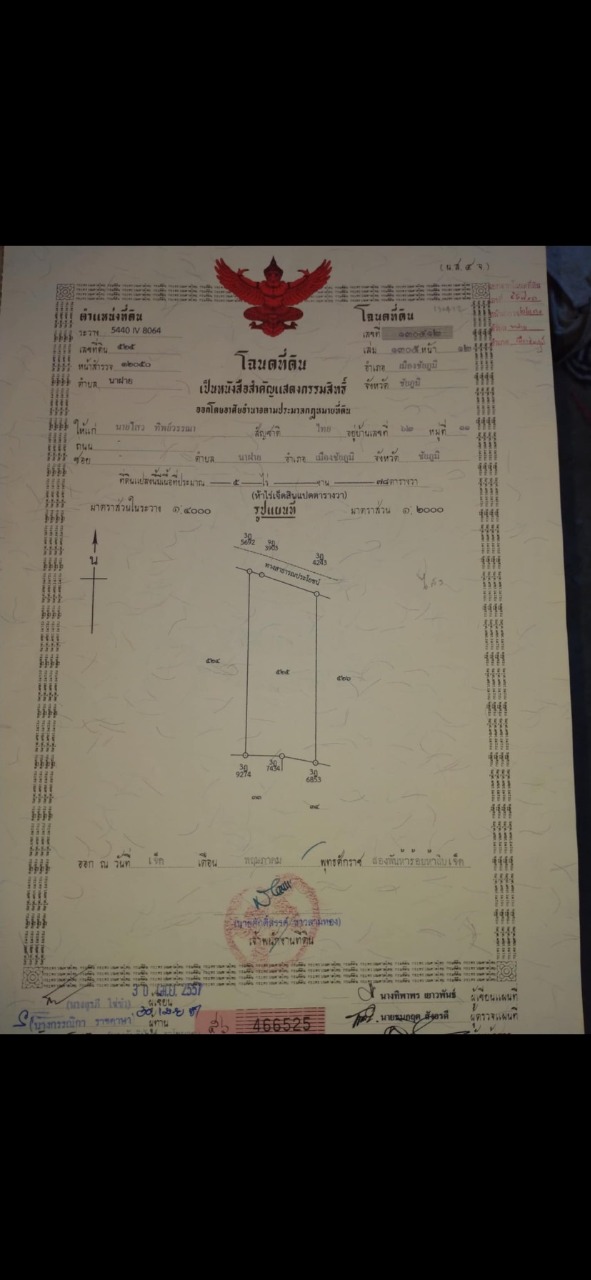 (น.ส.๔ จ.)
ตำแหน่งที่ดิน
ระวาง 5440 IV 8064
เลขที่ดิน ๕๒๕
หน้าสำรวจ ๑๒๐๕๐
ตำบล นาฝาย
โฉนดที่ดิน
เลขที่ ๑๓๐๕๑๒
เล่ม ๑๓๐๕ หน้า ๑๒
อำเภอ เมืองชัยภูมิ
จังหวัด ชัยภูมิ
โฉนดที่ดิน
เป็นหนังสือสำคัญแสดงกรรมสิทธิ์
ออกโดยอาศัยอำนาจตามประมวลกฎหมายที่ดิน
ให้แก่ นายไสว ทิพย์วรรณา สัญชาติ ไทย อยู่บ้านเลขที่ ๖๒ หมู่ที่ ๑๑
ถนน
ซอย ตำบล นาฝาย อำเภอ เมืองชัยภูมิ จังหวัด ชัยภูมิ
ที่ดินแปลงนี้มีเนื้อที่ประมาณ ๕ ไร่ - งาน ๗๘ ตารางวา
(ห้าไร่เจ็ดสิบแปดตารางวา)
มาตราส่วนในระวาง ๑:๔๐๐๐ รูปแผนที่ มาตราส่วน ๑:๒๐๐๐
น
3ฎ 5692
3ฎ 3903
3ฎ 4243
ทางสาธารณประโยชน์
๕๒๔
๕๒๕
๕๒๖
3ฎ 9274
3ฎ 7434
3ฎ 6853
๓๓
๓๔
ออก ณ วันที่ เจ็ด เดือน พฤษภาคม พุทธศักราช สองพันห้าร้อยห้าสิบเจ็ด
เจ้าพนักงานที่ดิน
3 0 เม.ย. 2557
ผู้เขียน
ผู้ทาน
466525
นางทิพาพร เยาวพันธ์ ผู้เขียนแผนที่
ผู้ตรวจแผนที่